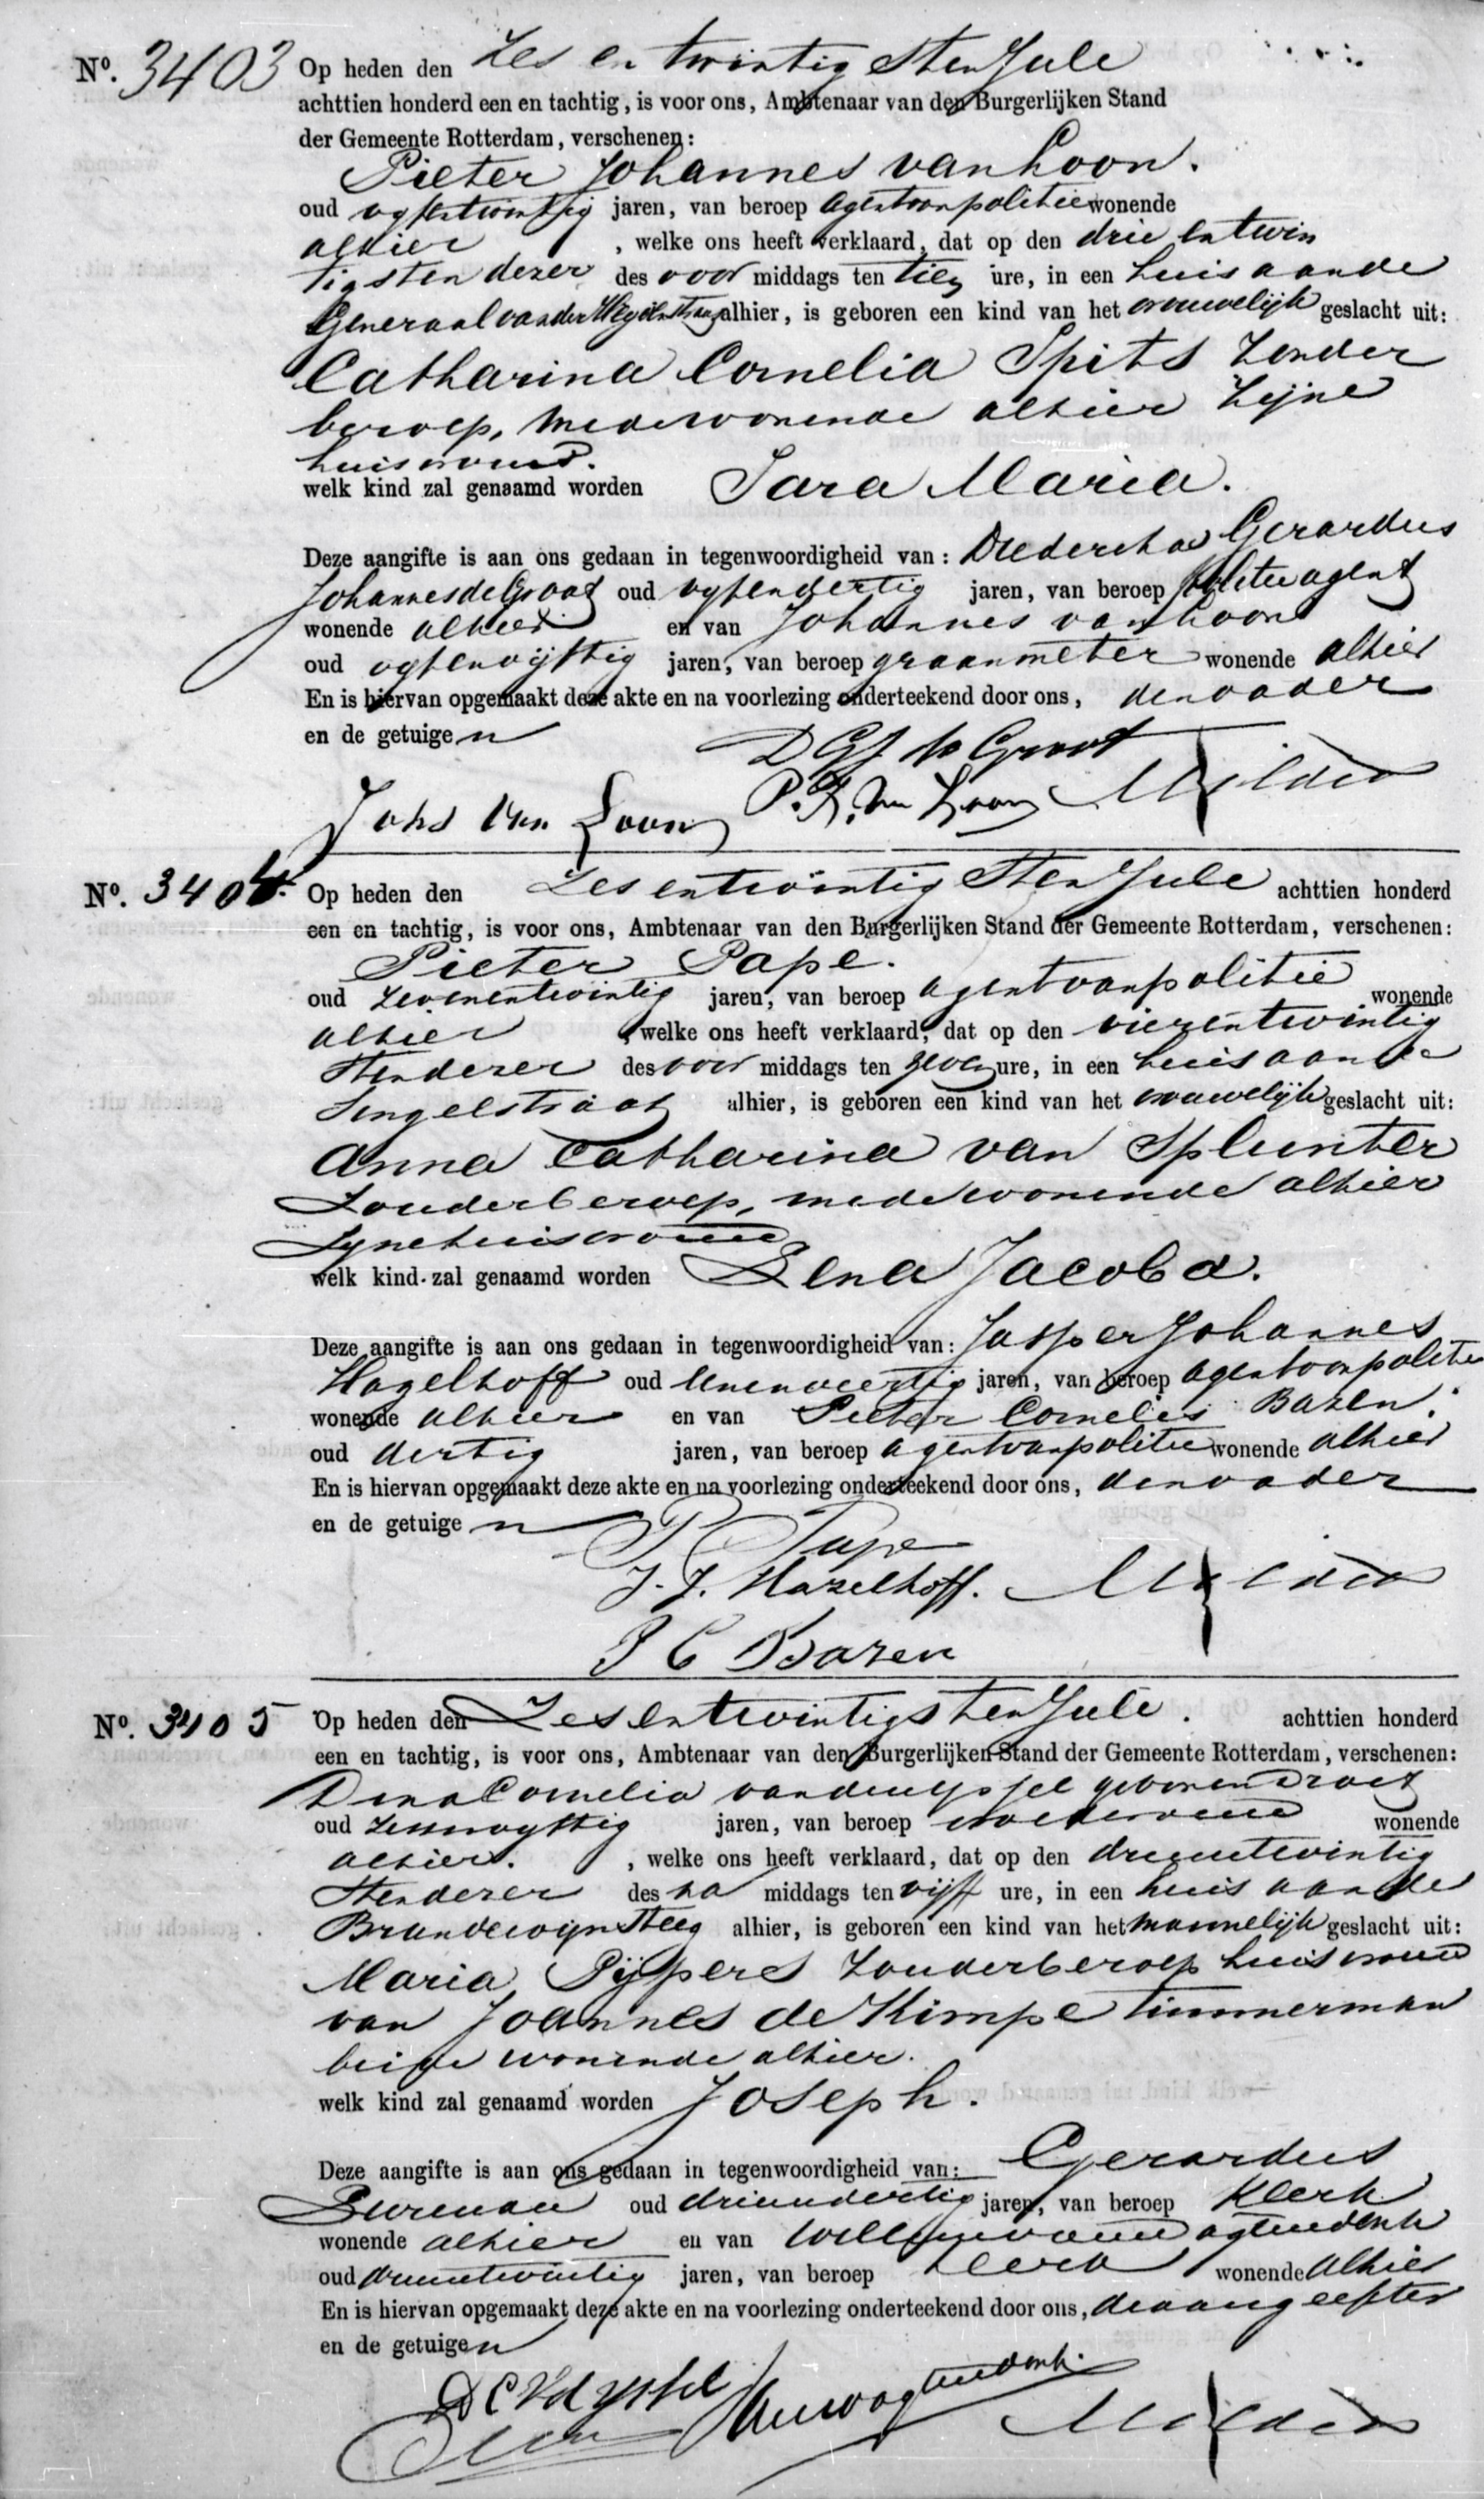 No. 3403 Op heden den Zes en twintigsten Julij
achttien honderd een en tachtig, is voor ons, Ambtenaar van den Burgerlijken Stand
der Gemeente Rotterdam, verschenen:
Pieter Johannes van Loon.
oud vyfentwintig jaren, van beroep agent van politie wonende
alhier , welke ons heeft verklaard, dat op den drie entwin
tigsten dezer des voor middags ten tien ure, in een huis aande
Generaal van der Heydenstraat alhier, is geboren een kind van het vrouwelijk geslacht uit:
Catharina Cornelia Spits zonder
beroep, mede wonende alhier zijne
huisvrouw.
welk kind zal genaamd worden Sara Maria.
Deze aangifte is aan ons gedaan in tegenwoordigheid van: Diederichus Gerardus
Johannes de Groot oud vyfendertig jaren, van beroep politieagent
wonende alhier en van Johannes van Loon
oud vyfenvijftig jaren, van beroep graanmeter wonende alhier
En is hiervan opgemaakt deze akte en na voorlezing onderteekend door ons, den vader
en de getuigen
D G J de Groot
Johs Van Loon P. J. van Loon
No. 3404 Op heden den Zes entwintigsten Julij achttien honderd
een en tachtig, is voor ons, Ambtenaar van den Burgerlijken Stand der Gemeente Rotterdam, verschenen:
Pieter Pape.
oud zevenentwintig jaren, van beroep agent van politie wonende
alhier , welke ons heeft verklaard, dat op den vierentwintig
sten dezer des voor middags ten zeven ure, in een huis aan de
Singelstraat alhier, is geboren een kind van het vrouwelijk geslacht uit:
Anna Catharina van Splunter
zonder beroep, mede wonende alhier
zyne huisvrouw
welk kind zal genaamd worden Lena Jacoba.
Deze aangifte is aan ons gedaan in tegenwoordigheid van: Jasper Johannes
Hazelhoff oud eenenveertig jaren, van beroep agent van politie
wonende alhier en van Pieter Cornelis Bazen.
oud dertig jaren, van beroep agent van politie wonende alhier
En is hiervan opgemaakt deze akte en na voorlezing onderteekend door ons, den vader
en de getuigen
P Pape
J. J. Hazelhoff.
P C Bazen
No. 3405 Op heden den Zes entwintigsten Julij. achttien honderd
een en tachtig, is voor ons, Ambtenaar van den Burgerlijken Stand der Gemeente Rotterdam, verschenen:
Dina Cornelia van den Yssel geboren Droet
oud zesenvyftig jaren, van beroep vroedvrouw wonende
alhier. , welke ons heeft verklaard, dat op den drieentwintig
sten dezer des na middags ten vijf ure, in een huis aan de
Brandewynsteeg alhier, is geboren een kind van het mannelijk geslacht uit:
Maria Pijpers zonder beroep huisvrouw
van Joannes de Kimpe timmerman
beide wonende alhier.
welk kind zal genaamd worden Joseph.
Deze aangifte is aan ons gedaan in tegenwoordigheid van: Gerardus
Bureman oud drieendertig jaren, van beroep klerk
wonende alhier en van
oud drieentwintig jaren, van beroep klerk wonende alhier
En is hiervan opgemaakt deze akte en na voorlezing onderteekend door ons, de aangeefster
en de getuigen
D C Vd Yssel